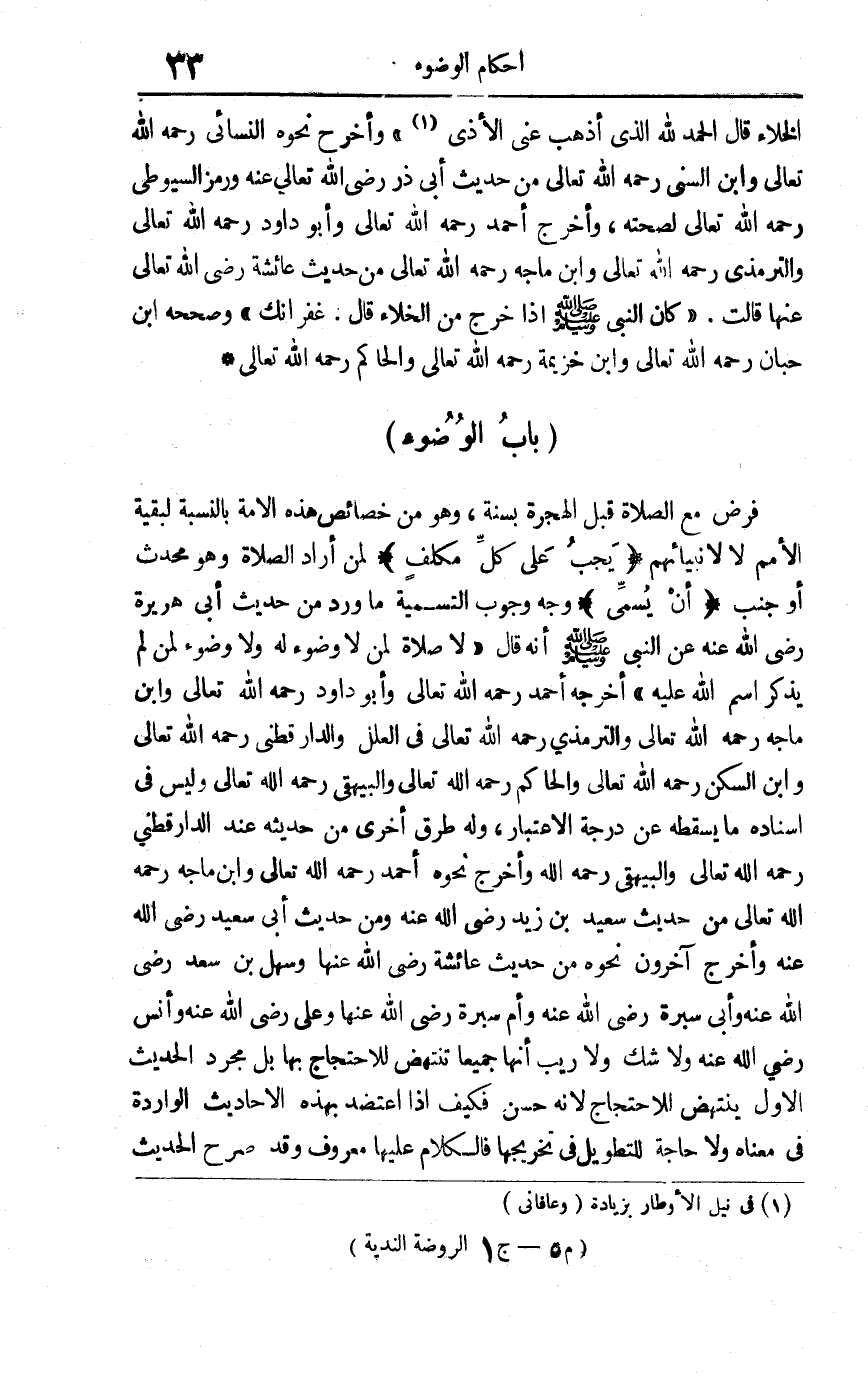 احكام الوضوء ٣٣
الخلاء قال الحمد لله الذى أذهب عنى الأذى (١) » وأخرج نحوه النسائى رحمه الله
تعالى وابن السنى رحمه الله تعالى من حديث أبى ذر رضى الله تعالي عنه ورمز السيوطى
رحمه الله تعالى لصحته ، وأخرج أحمد رحمه الله تعالى وأبو داود رحمه الله تعالى
والترمذى رحمه الله تعالى وابن ماجه رحمه الله تعالى من حديث عائشة رضى الله تعالى
عنها قالت . « كان النبى ﷺ اذا خرج من الخلاء قال . غفرانك » وصححه ابن
حبان رحمه الله تعالى وابن خزيمة رحمه الله تعالى والحاكم رحمه الله تعالى *
( بابُ الوُضُوء )
فرض مع الصلاة قبل الهجرة بسنة ، وهو من خصائص هذه الامة بالنسبة لبقية
الأمم لا لانبيائهم ﴿ يَجبُ عَلى كلِّ مكلفٍ ﴾ لمن أراد الصلاة وهو محدث
أو جنب ﴿ أنْ يُسمِّى ﴾ وجه وجوب التسمية ما ورد من حديث أبى هريرة
رضى الله عنه عن النبى ﷺ أنه قال « لا صلاة لمن لا وضوء له ولا وضوء لمن لم
يذكر اسم الله عليه » أخرجه أحمد رحمه الله تعالى وأبو داود رحمه الله تعالى وابن
ماجه رحمه الله تعالى والترمذي رحمه الله تعالى فى العلل والدارقطنى رحمه الله تعالى
وابن السكن رحمه الله تعالى والحاكم رحمه الله تعالى والبيهقى رحمه الله تعالى وليس فى
اسناده ما يسقطه عن درجة الاعتبار ، وله طرق أخرى من حديثه عند الدارقطني
رحمه الله تعالى والبيهقى رحمه الله وأخرج نحوه أحمد رحمه الله تعالى وابن ماجه رحمه
الله تعالى من حديث سعيد بن زيد رضى الله عنه ومن حديث أبى سعيد رضى الله
عنه وأخرج آخرون نحوه من حديث عائشة رضى الله عنها وسهل بن سعد رضى
الله عنه وأبى سبرة رضى الله عنه وأم سبرة رضى الله عنها وعلى رضى الله عنه وأنس
رضي الله عنه ولا شك ولا ريب أنها جميعا تنتهض للاحتجاج بها بل مجرد الحديث
الاول ينتهض للاحتجاج لانه حسن فكيف اذا اعتضد بهذه الاحاديث الواردة
فى معناه ولا حاجة للتطويل فى تخريجها فالكلام عليها معروف وقد صرح الحديث
(١) فى نيل الأوطار بزيادة ( وعافانى )
( م ٥ — ج ١ الروضة الندية )